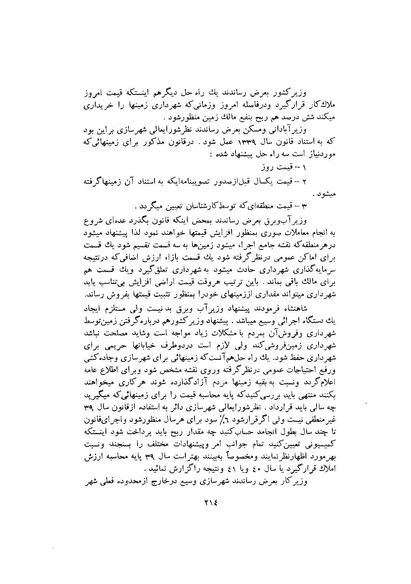 وزیر کشور بعرض رساندند یك راه حل دیگر هم اینستکه قیمت امروز
ملاك کار قرار گیرد و در فاصله امروز و زمانی‌که شهرداری زمینها را خریداری
میکند شش درصد هم ربح بنفع مالك زمین منظور شود .
وزیر آبادانی و مسکن بعرض رساندند نظر شورایعالی شهرسازی بر این بود
که به استناد قانون سال ۱۳۳۹ عمل شود . در قانون مذکور برای زمینهائی‌که
مورد نیاز است سه راه حل پیشنهاد شده :
۱ – قیمت روز
۲ – قیمت یکسال قبل از صدور تصویبنامه‌ایکه به استناد آن زمینها گرفته
میشود .
۳ – قیمت منطقه‌ای که توسط کارشناسان تعیین میگردد .
وزیر آب و برق بعرض رساندند بمحض اینکه قانون بگذرد عده‌ای شروع
به انجام معاملات صوری بمنظور افزایش قیمتها خواهند نمود لذا پیشنهاد میشود
در هر منطقه که نقشه جامع اجراء میشود زمین‌ها به سه قسمت تقسیم شود یك قسمت
برای اماکن عمومی در نظر گرفته شود یك قسمت بازاء ارزش اضافی که در نتیجه
سرمایه گذاری شهرداری حادث میشود به شهرداری تعلق گیرد و یك قسمت هم
برای مالك باقی بماند . باین ترتیب هر وقت قیمت اراضی افزایش بی‌تناسب یابد
شهرداری میتواند مقداری از زمینهای خود را بمنظور تثبیت قیمتها بفروش رساند .
شاهنشاه فرمودند پیشنهاد وزیر آب و برق بد نیست ولی مستلزم ایجاد
یك دستگاه اجرائی وسیع میباشد . پیشنهاد وزیر کشور هم درباره گرفتن زمین توسط
شهرداری و فروش آن بمردم با مشکلات زیاد مواجه است و شاید مصلحت نباشد
شهرداری زمین فروشی کند ولی لازم است در دو طرف خیابانها حریمی برای
شهرداری حفظ شود . یك راه حل هم آنست که زمینهائی برای شهرسازی و جاده کشی
و رفع احتیاجات عمومی در نظر گرفته و روی نقشه مشخص شود و برای اطلاع عامه
اعلام گردد و نسبت به بقیه زمینها مردم آزاد گذارده شوند هر کاری میخواهند
بکنند منتهی باید بررسی کنید که پایه محاسبه قیمت را برای زمینهائی که میگیرید
چه سالی باید قرار داد . نظر شورایعالی شهرسازی دائر به استفاده از قانون سال ۳۹
غیر منطقی نیست ولی اگر قرار شود ۶٪ سود برای هر سال منظور شود و اجرای قانون
تا چند سال بطول انجامد حساب کنید چه مقدار ربح باید پرداخت شود اینستکه
کمیسیونی تعیین کنید تمام جوانب امر و پیشنهادات مختلف را بسنجند و نسبت
بهر مورد اظهار نظر نمایند و مخصوصاً به‌بینند بهتر است سال ۳۹ پایه محاسبه ارزش
املاك قرار گیرد یا سال ۴۰ و یا ۴۱ و نتیجه را گزارش نمائید .
وزیر کار بعرض رساندند شهرسازی وسیع در خارج از محدوده فعلی شهر
۲۱٤